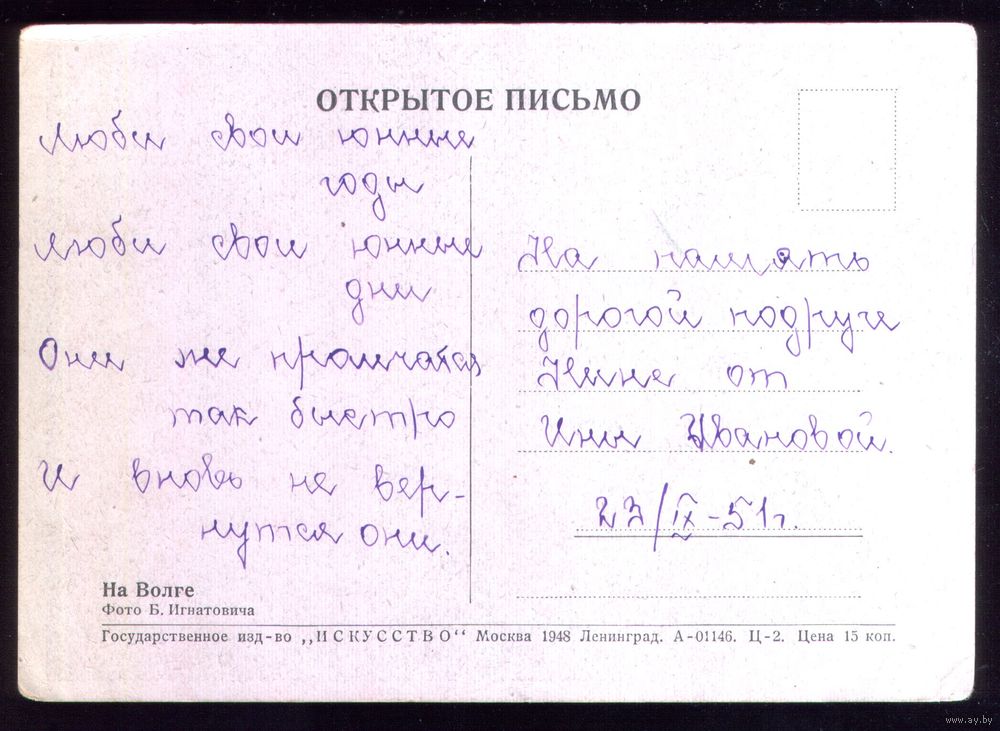 ОТКРЫТОЕ ПИСЬМО
Люби свои юнные
годы
Люби свои юнные
дни
Они же промчатся
так быстро
И вновь не вер-
нутся они.
На память
дорогой подруге
Нине от
Ины Ивановой.
23/IX-51г.
На Волге
Фото Б. Игнатовича
Государственное изд-во „ИСКУССТВО“ Москва 1948 Ленинград. А-01146. Ц-2. Цена 15 коп.
www.ay.by